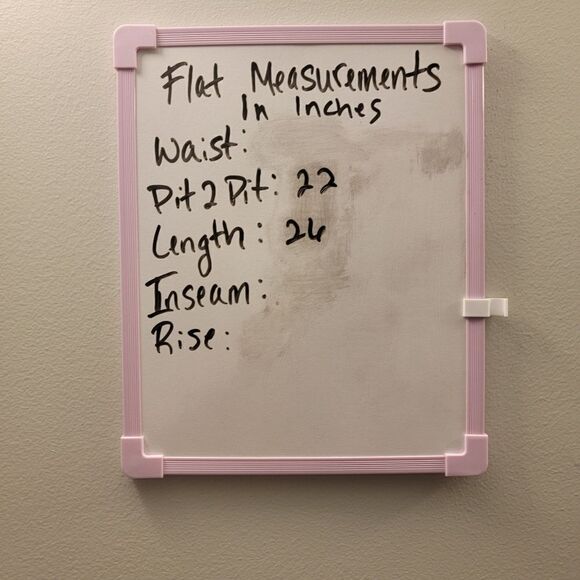 Flat Measurements
In Inches
Waist:
Pit 2 Pit: 22
Length: 26
Inseam:
Rise: